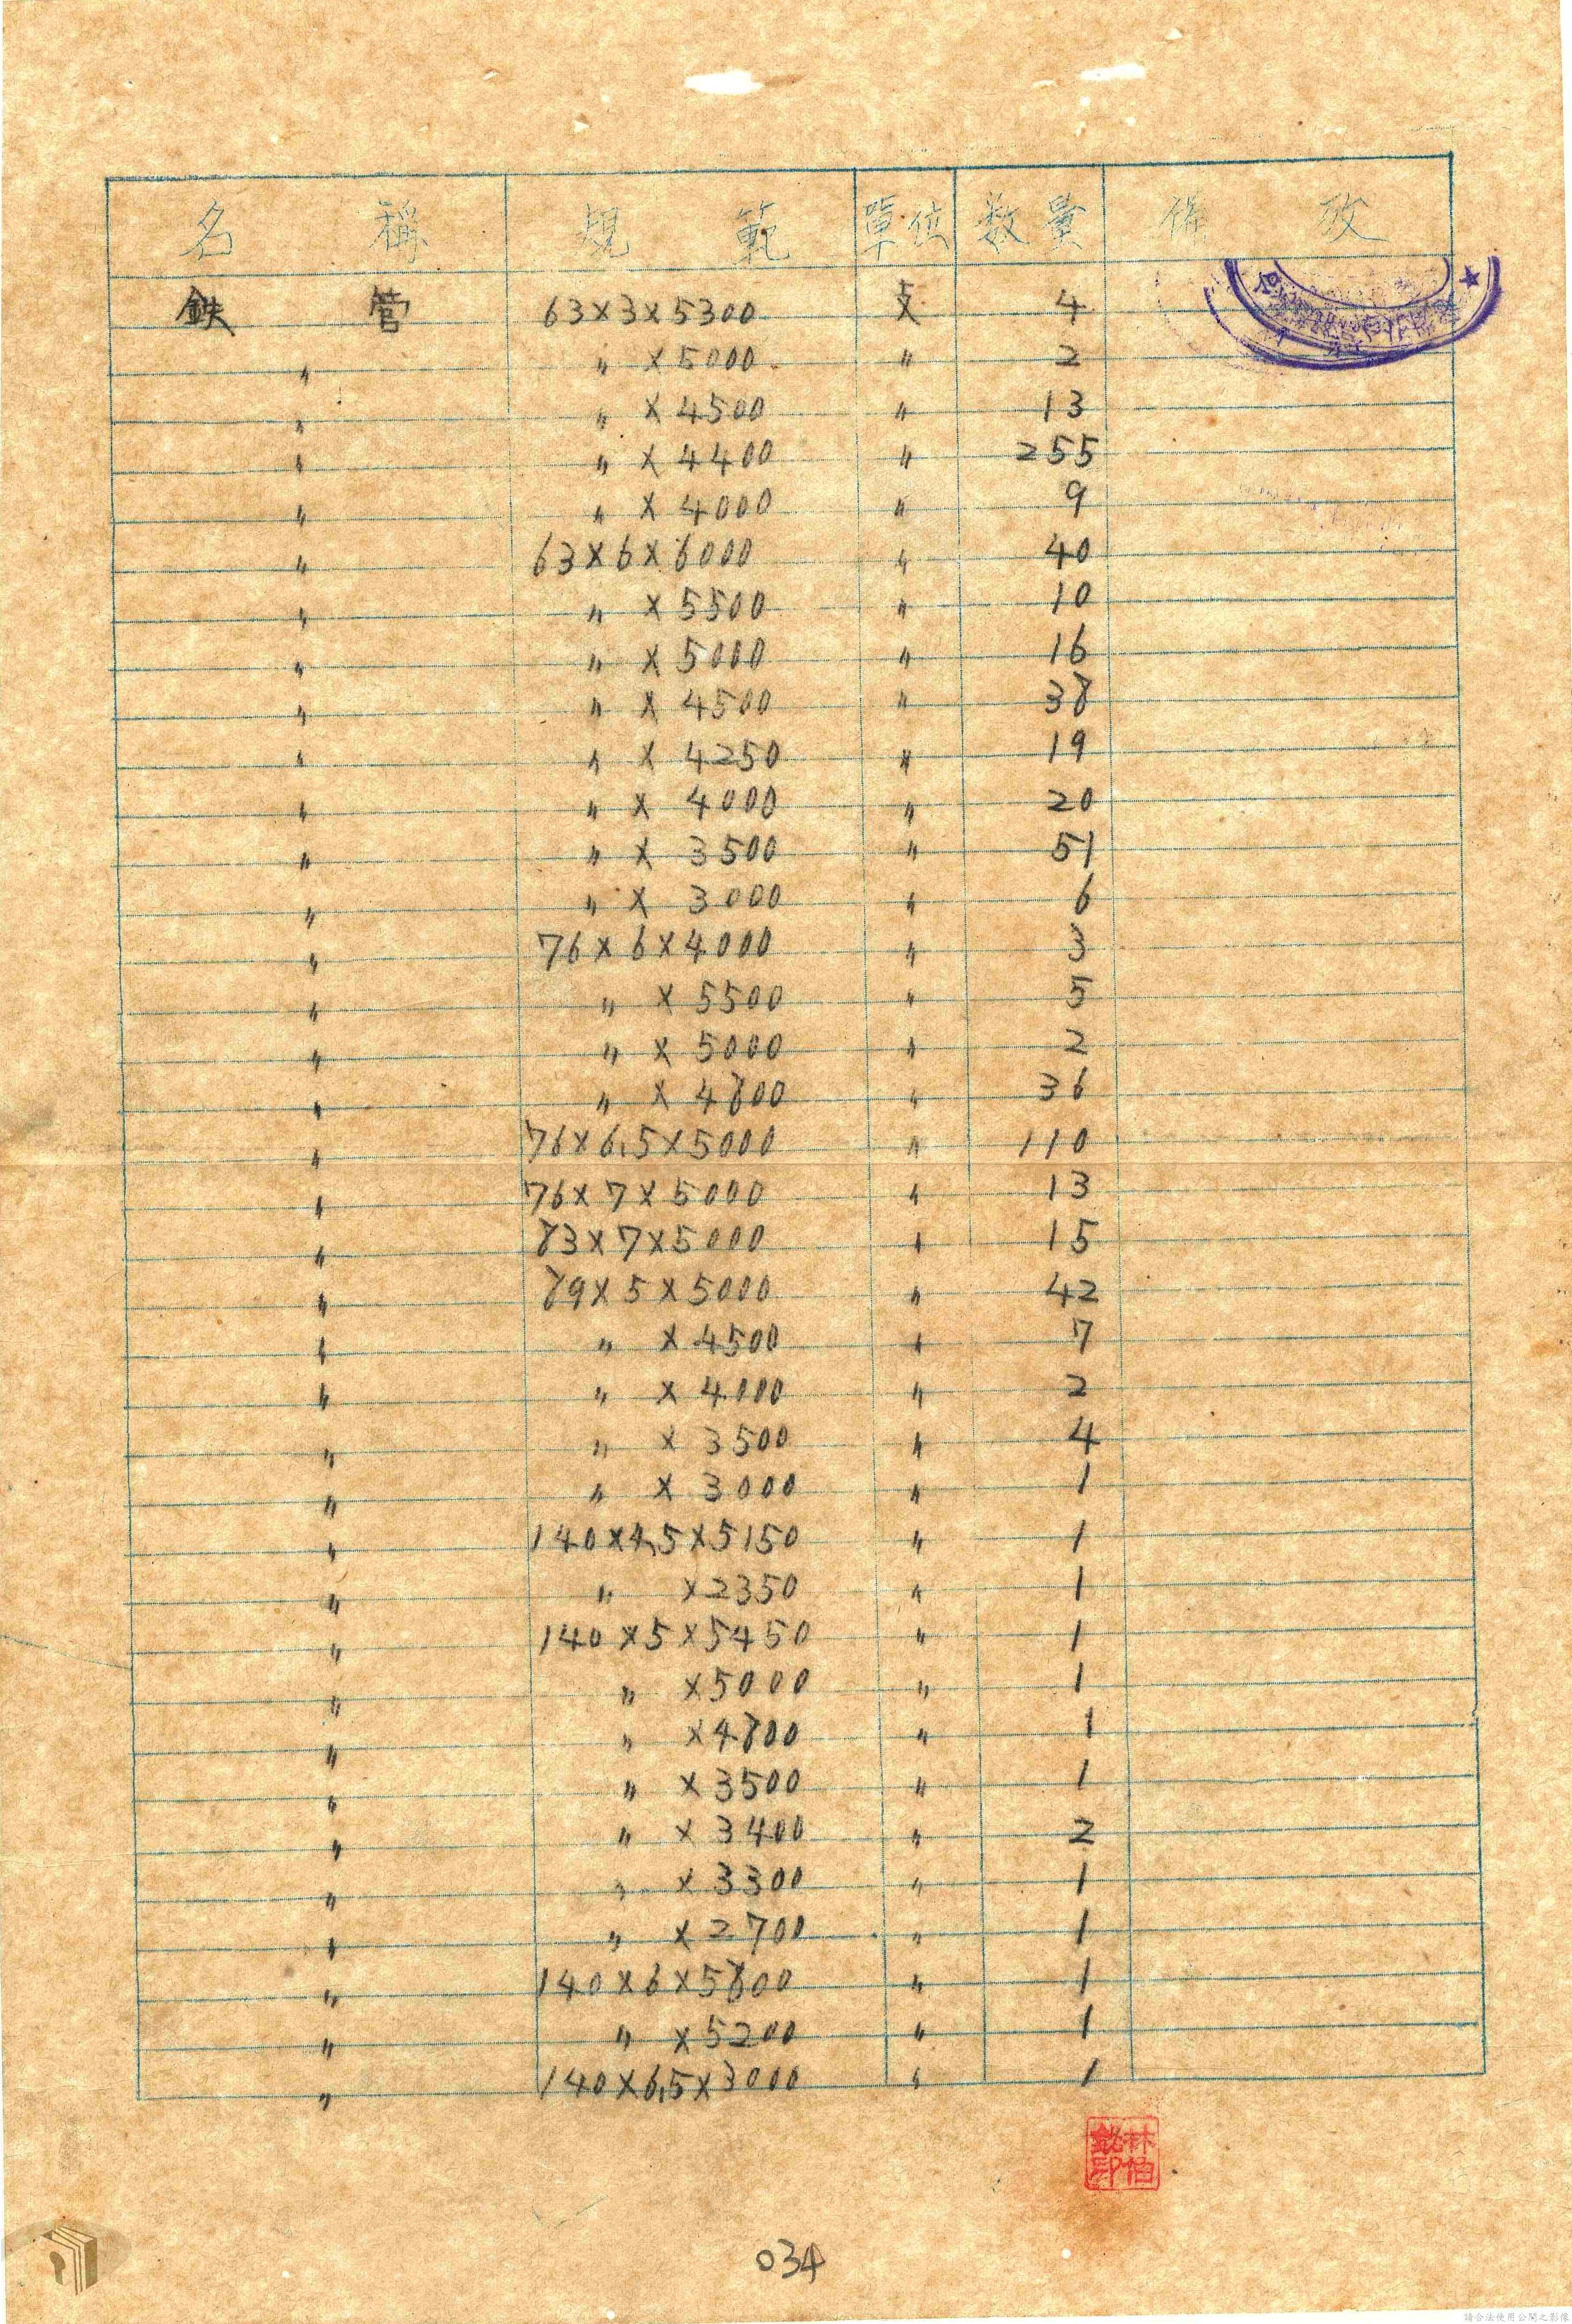 名稱 規範 單位 数量 備攷
鉄管 63×3×5300 支 4
〃 〃 ×5000 〃 2
〃 〃 ×4500 〃 13
〃 〃 ×4400 〃 255
〃 〃 ×4000 〃 9
〃 63×6×6000 〃 40
〃 〃 ×5500 〃 10
〃 〃 ×5000 〃 16
〃 〃 ×4500 〃 38
〃 〃 ×4250 〃 19
〃 〃 ×4000 〃 20
〃 〃 ×3500 〃 51
〃 〃 ×3000 〃 6
〃 76×6×4000 〃 3
〃 〃 ×5500 〃 5
〃 〃 ×5000 〃 2
〃 〃 ×4800 〃 36
〃 76×6.5×5000 〃 110
〃 76×7×5000 〃 13
〃 83×7×5000 〃 15
〃 89×5×5000 〃 42
〃 〃 ×4500 〃 7
〃 〃 ×4000 〃 2
〃 〃 ×3500 〃 4
〃 〃 ×3000 〃 1
〃 140×4.5×5150 〃 1
〃 〃 ×2350 〃 1
〃 140×5×5450 〃 1
〃 〃 ×5000 〃 1
〃 〃 ×4800 〃 1
〃 〃 ×3500 〃 1
〃 〃 ×3400 〃 2
〃 〃 ×3300 〃 1
〃 〃 ×2700 〃 1
〃 140×6×5800 〃 1
〃 〃 ×5200 〃 1
〃 140×6.5×3000 〃 1
林伯
銘印
034
請合法使用公開之影像